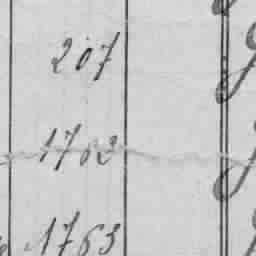 207
1762
1763